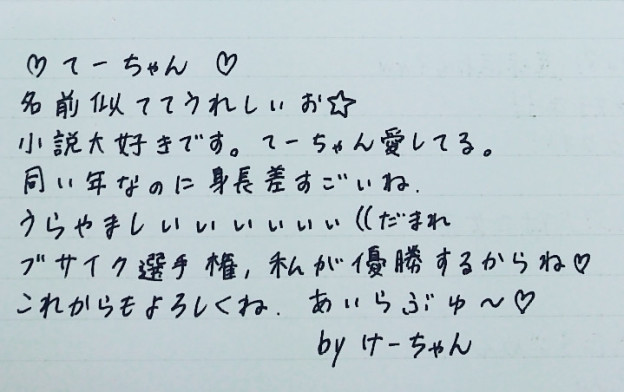 ♡てーちゃん♡
名前似ててうれしいお☆
小説大好きです。てーちゃん愛してる。
同い年なのに身長差すごいね.
うらやましいぃぃぃぃぃ((だまれ
ブサイク選手権,私が優勝するからね♡
これからもよろしくね. あいらぶゅ〜♡
by けーちゃん